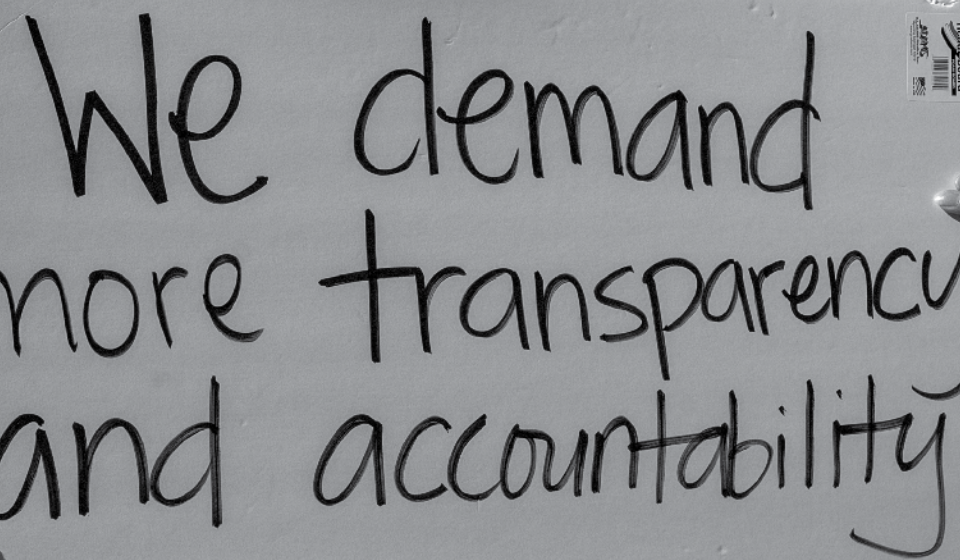 We demand
more transparency
and accountability